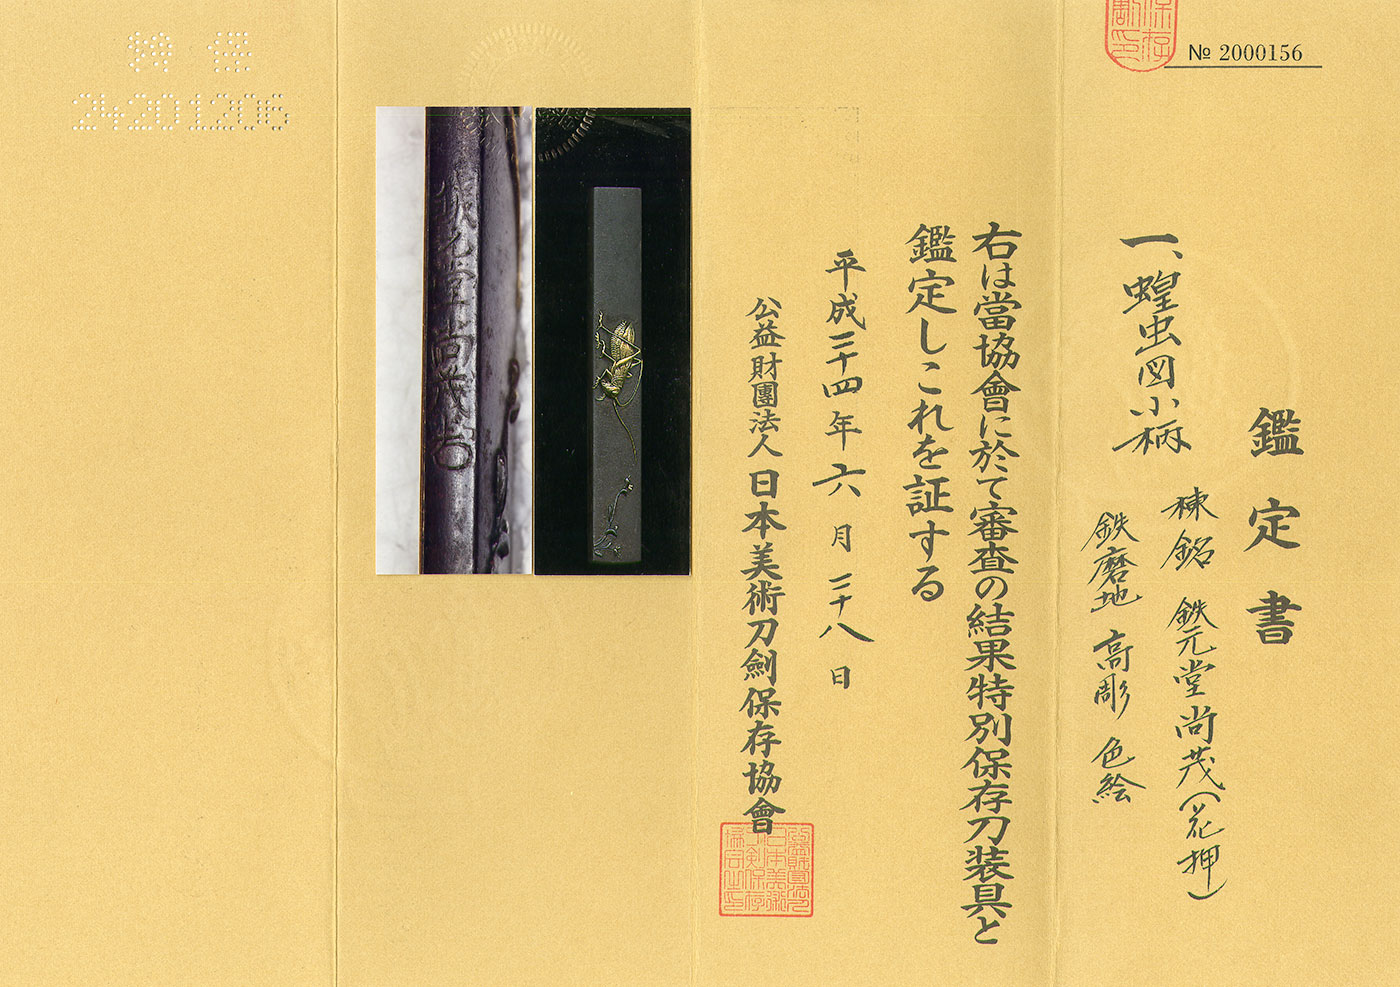 № 2000156
鑑定書
一、蝗虫図小柄
棟銘 鉄元堂尚茂(花押)
鉄磨地 高彫 色絵
右は當協會に於て審査の結果特別保存刀装具と
鑑定しこれを証する
平成二十四年六月二十八日
公益財團法人 日本美術刀劍保存協會
鉄元堂尚茂
24201206